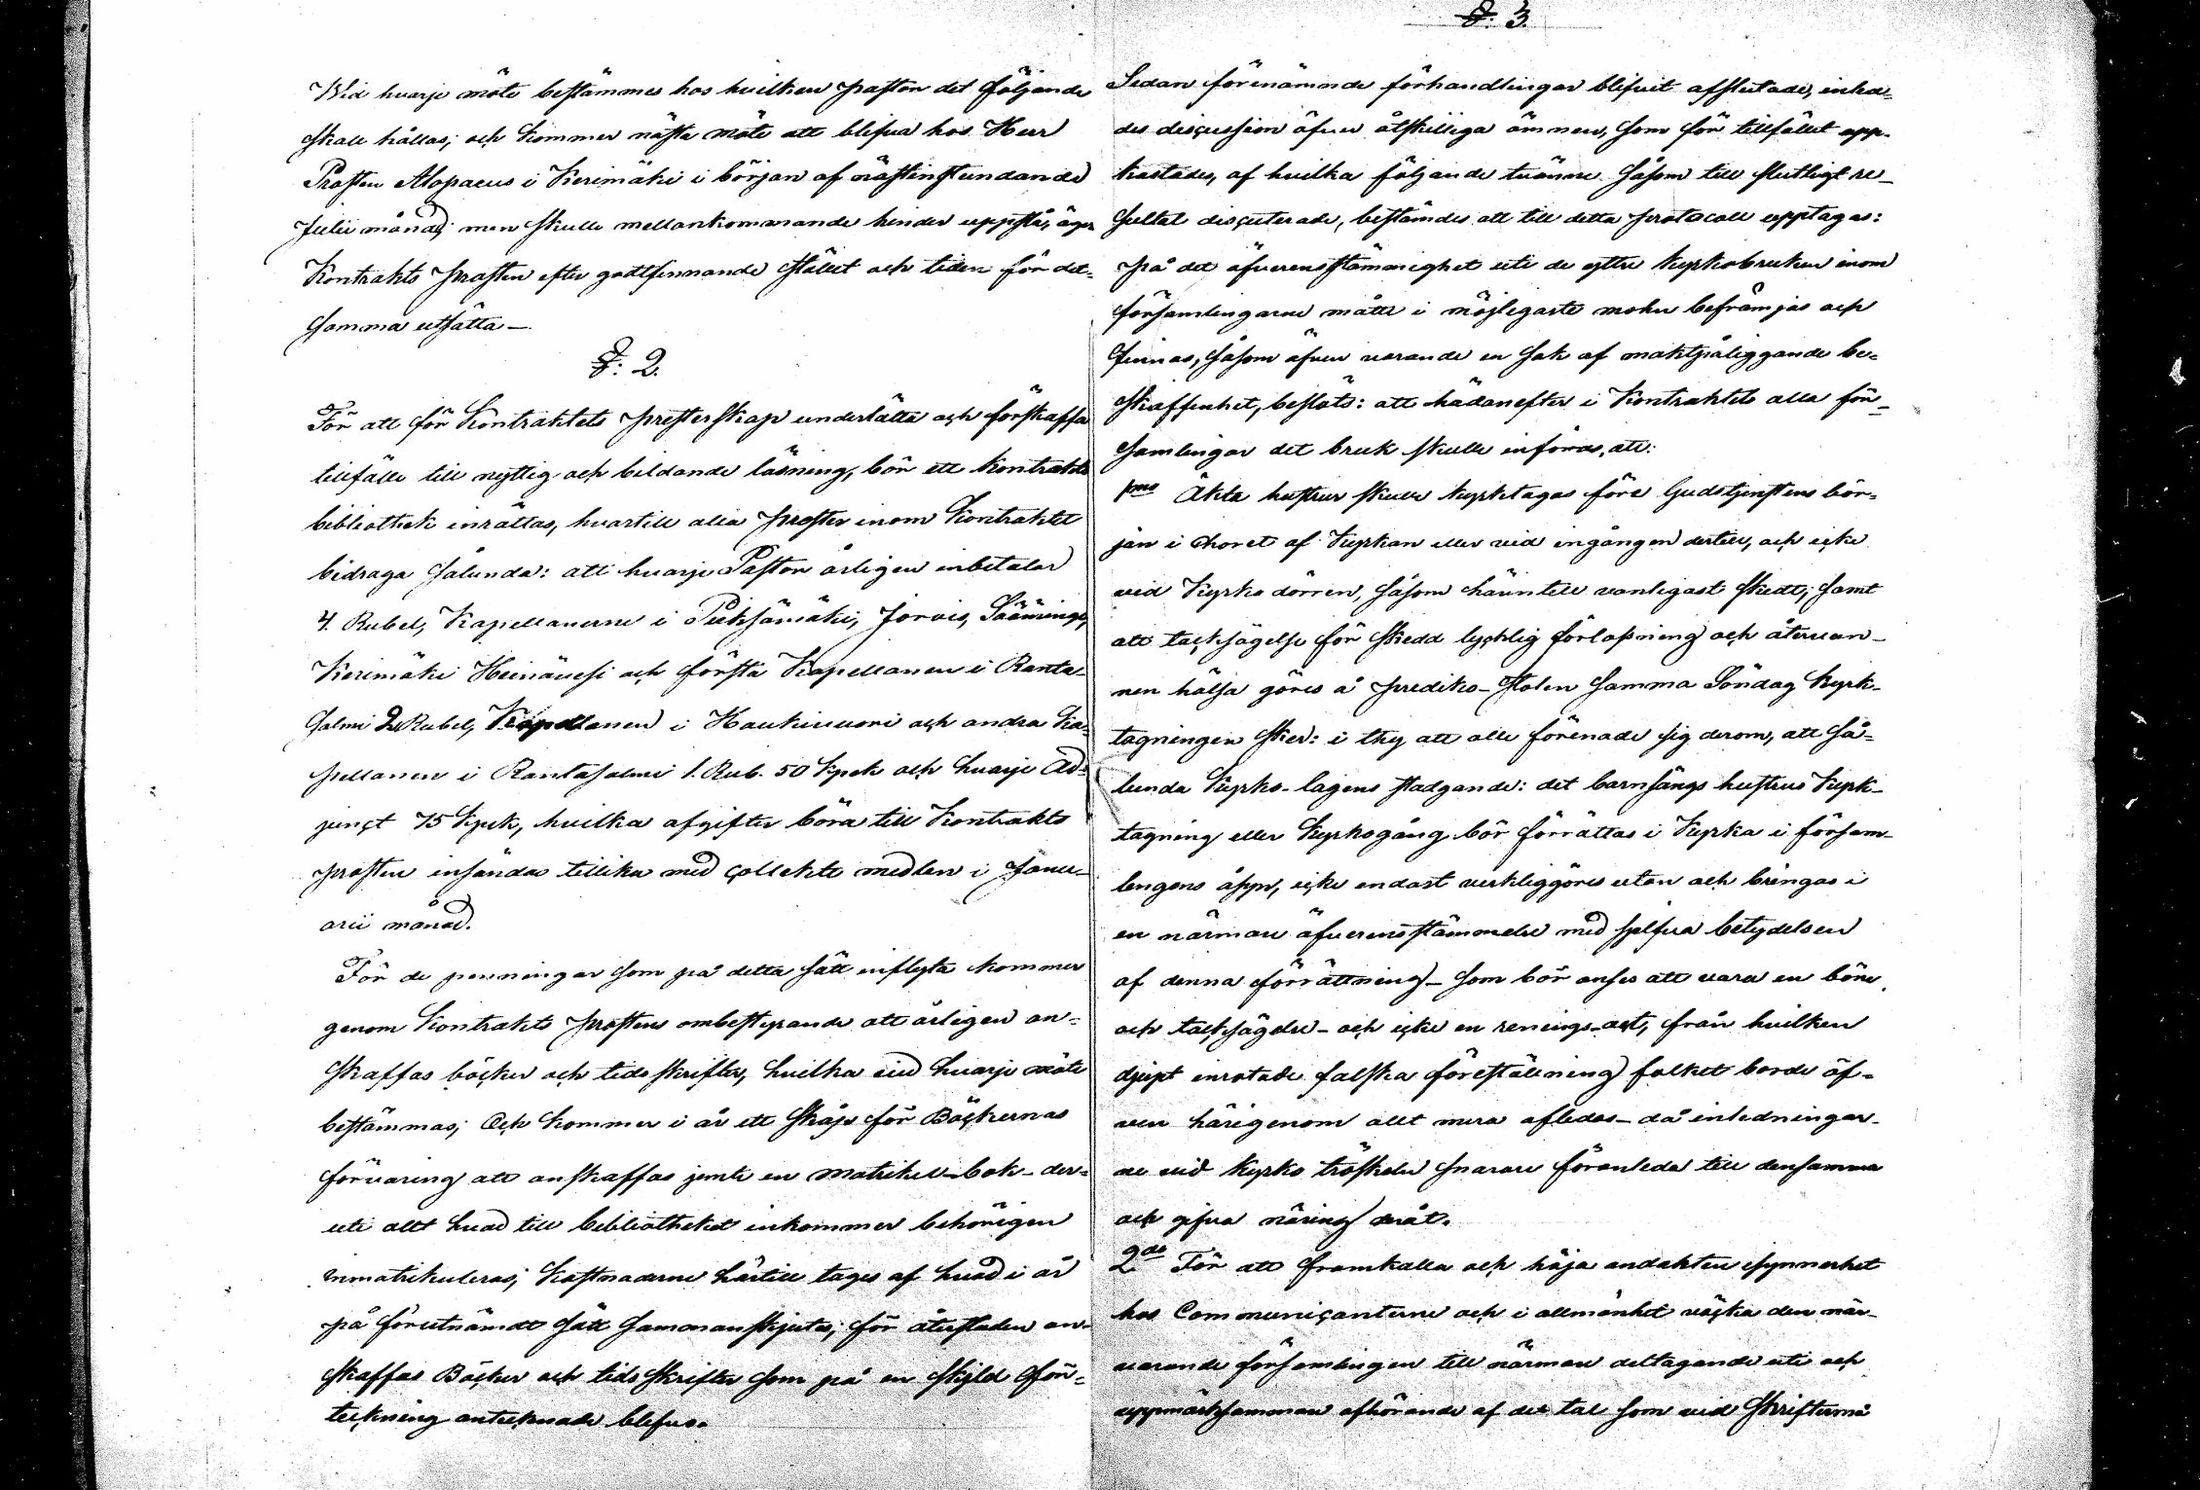 Wid hvarje möte bestämmes hos hvilken pastor det följande
skall hållas; och kommer nästa möte att blifva hos Herr
Prosten Alopaeus i Kerimäki i början af nästinstundande
Julii månad; men skulle mellankommande hinder uppstå, äger
Kontrakts prosten efter godtfinnande stället och tiden för det-
samma utsätta —
§: 2.
För att för Kontraktets presterskap underlätta och förskaffa
tillfälle till nyttig och bildande läsning, bör ett Kontrakts
bibliothek inrättas, hvartill alla prester inom Kontraktet
bidraga sålunda: att hvarje Pastor årligen inbetalar
4. Rubel, Kapellanerne i Pieksämäki, Jorois, Sääminge,
Kerimäki Heinävesi och första Kapellanen i Ranta-
salmi 2 Rubel, Kapellanen i Haukivuori och andra Ka-
pellanen i Rantasalmi 1. Rub. 50 Kpek och hvarje Ad-
junct 75 Kpek, hvilka afgifter böra till Kontrakts
prosten insändas tillika med collekte medlen i Janu-
arii månad.
För de penningar som på detta sätt inflyta kommer
genom Kontrakts prostens ombestyrande att årligen an-
skaffas böcker och tidsskrifter, hvilka vid hvarje möte
bestämmas; Och kommer i år ett skåp för Böckernas
förvaring att anskaffas jemte en matrikel-bok - der-
uti allt hvad till bibliotheket inkommer behörigen
inmatrikuleras; Kostnaderne härtill tages af hvad i år
på förutnämdt sätt sammanskjutes; för återstoden an-
skaffas Böcker och tidsskrifter som på en skyld för-
teckning antecknade blefvo.
§. 3.
Sedan förenämnde förhandlingar blifvit afslutade, inled-
des discussion öfver åtskilliga ämnen, som för tillfället upp-
kastades, af hvilka följande tvänne såsom till slutligt re-
sultat discuterade, bestämdes att till detta protocoll upptagas:
på det öfverensstämmighet uti de yttre kyrkobruken inom
församlingarne måtte i möjligaste mohn befrämjas och
finnas, såsom äfven varande en sak af maktpåliggande be-
skaffenhet, beslöts: att hädanefter i Kontraktets alla för-
samlingar det bruk skulle införas, att:
1mo Äkta hustrur skulle kyrktagas före Gudstjenstens bör-
jan i Choret af Kyrkan eller vid ingången dertill, och icke
vid Kyrko dörren, såsom härintill vanligast skedt; samt
att tacksägelse för skedd lycklig förlossning och återvun-
nen hälsa göres å prediko-stolen samma Söndag kyrk-
tagningen sker: i thy att alle förenade sig derom, att så-
lunda Kyrko-lagens stadgande: det barnsängs hustrus Kyrk-
tagning eller Kyrkogång bör förrättas i Kyrka i försam-
lingens åsyn, icke endast verkliggöres utan och bringas i
en närmare öfverensstämmelse med sjelfva betydelsen
af denna förrättning - som bör anses att vara en böne
och tacksägelse - och icke en renings-act, från hvilken
djupt inrotade falska föreställning folket borde äf-
ven härigenom allt mera afledas - då inledningar-
ne vid kyrko tröskeln snarare föranleda till densamma
och gifva näring deråt.
2do För att framkalla och höja andakten isynnerhet
hos Communicanterne och i allmänhet väcka den när-
varande församlingen till närmare deltagande uti och
uppmärksammare afhörande af det tal som vid Skriftermå